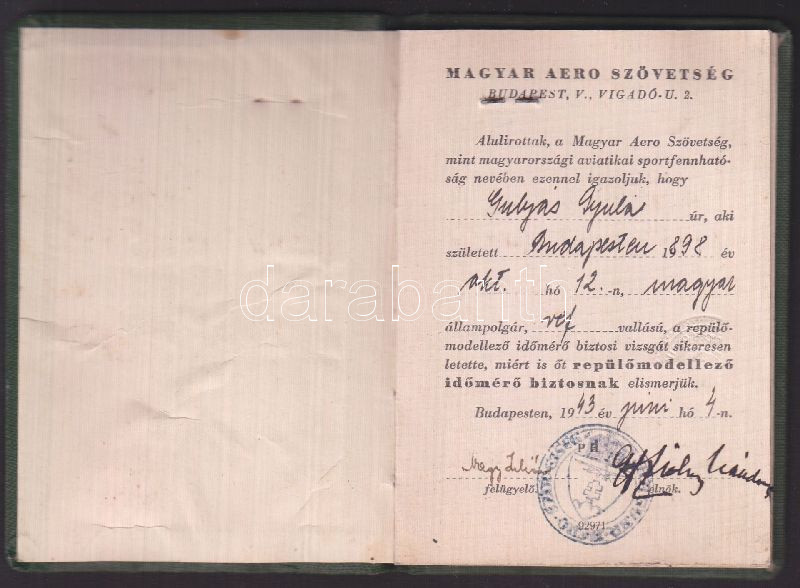 MAGYAR AERO SZÖVETSÉG
BUDAPEST, V., VIGADÓ-U. 2.
Alulirottak, a Magyar Aero Szövetség,
mint magyarországi aviatikai sportfennható-
ság nevében ezennel igazoljuk, hogy
Gulyás Gyula úr, aki
született Budapesten 1898 év
okt. hó 12.-n, magyar
állampolgár, ref vallású, a repülő-
modellező időmérő biztosi vizsgát sikeresen
letette, miért is őt repülőmodellező
időmérő biztosnak elismerjük.
Budapesten, 1943 év juni hó 4-n.
P H
Nagy
felügyelő. elnök.
92971
darabanth